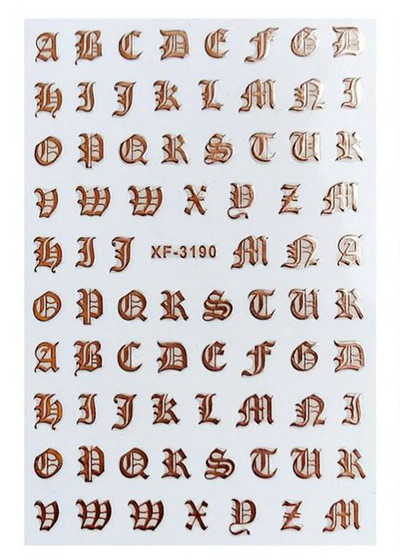 A B C D E F G D
H I J K L M N I
O P Q R S T U R
V W W X Y Z M
H I J XF-3190 M N A
O P Q R S T U R
A B C D E F G D
H I J K L M N I
O P Q R S T U R
V W W X Y Z M